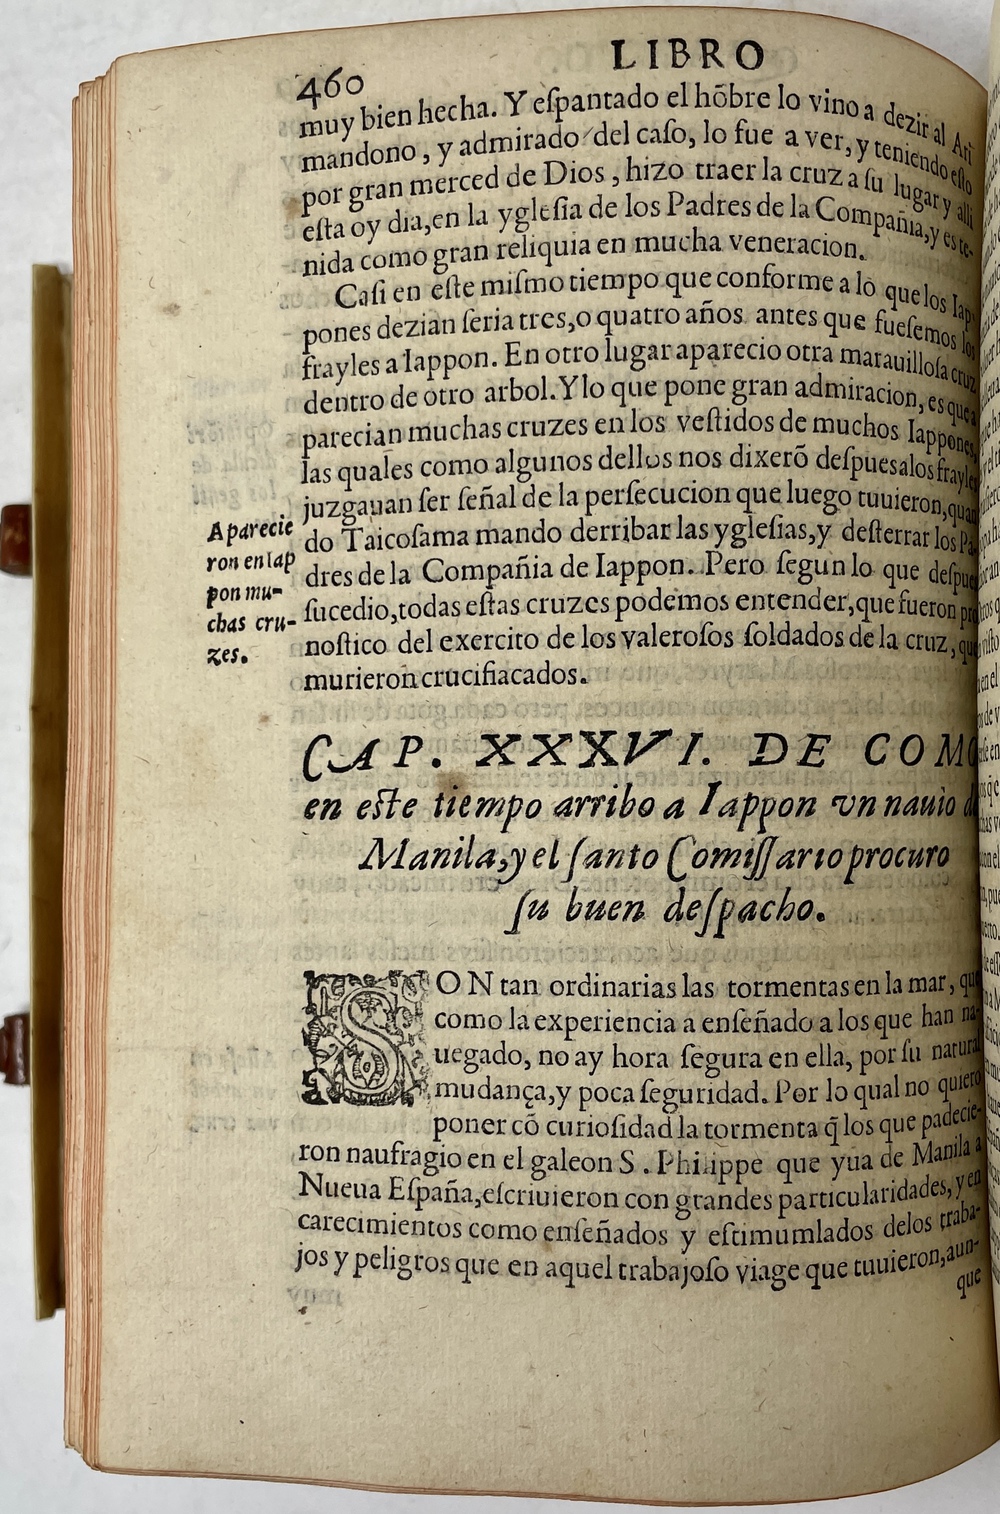 460 LIBRO
muy bien hecha. Y eſpantado el hõbre lo vino a dezir al Ari
mandono, y admirado del caſo, lo fue a ver, y teniendo eſto
por gran merced de Dios, hizo traer la cruz a ſu lugar y alli
eſta oy dia, en la ygleſia de los Padres de la Compañia, y es te-
nida como gran reliquia en mucha veneracion.
Caſi en eſte miſmo tiempo que conforme a lo que los Iap-
pones dezian ſeria tres, o quatro años antes que fueſemos los
frayles a Iappon. En otro lugar aparecio otra marauilloſa cruz
dentro de otro arbol. Y lo que pone gran admiracion, es que a
parecian muchas cruzes en los veſtidos de muchos Iappones,
las quales como algunos dellos nos dixerõ deſpues a los frayles
juzgauan ſer ſeñal de la perſecucion que luego tuuieron, quan
do Taicoſama mando derribar las ygleſias, y deſterrar los Pa
dres de la Compañia de Iappon. Pero ſegun lo que deſpue
ſucedio, todas eſtas cruzes podemos entender, que fueron pro
noſtico del exercito de los valeroſos ſoldados de la cruz, qu
murieron crucifiacados.
Aparecie
ron en Iap
pon mu-
chas cru-
zes.
CAP. XXXVI. DE COMO
en eſte tiempo arribo a Iappon vn nauio d
Manila, y el ſanto Comiſſario procuro
ſu buen deſpacho.
SON tan ordinarias las tormentas en la mar, que
como la experiencia a enſeñado a los que han na-
uegado, no ay hora ſegura en ella, por ſu natural
mudança, y poca ſeguridad. Por lo qual no quiero
poner cõ curioſidad la tormenta q̃ los que padecie-
ron naufragio en el galeon S. Philippe que yua de Manila a
Nueua Eſpaña, eſcriuieron con grandes particularidades, y en
carecimientos como enſeñados y eſtimumlados delos traba-
jos y peligros que en aquel trabajoſo viage que tuuieron, aun-
que